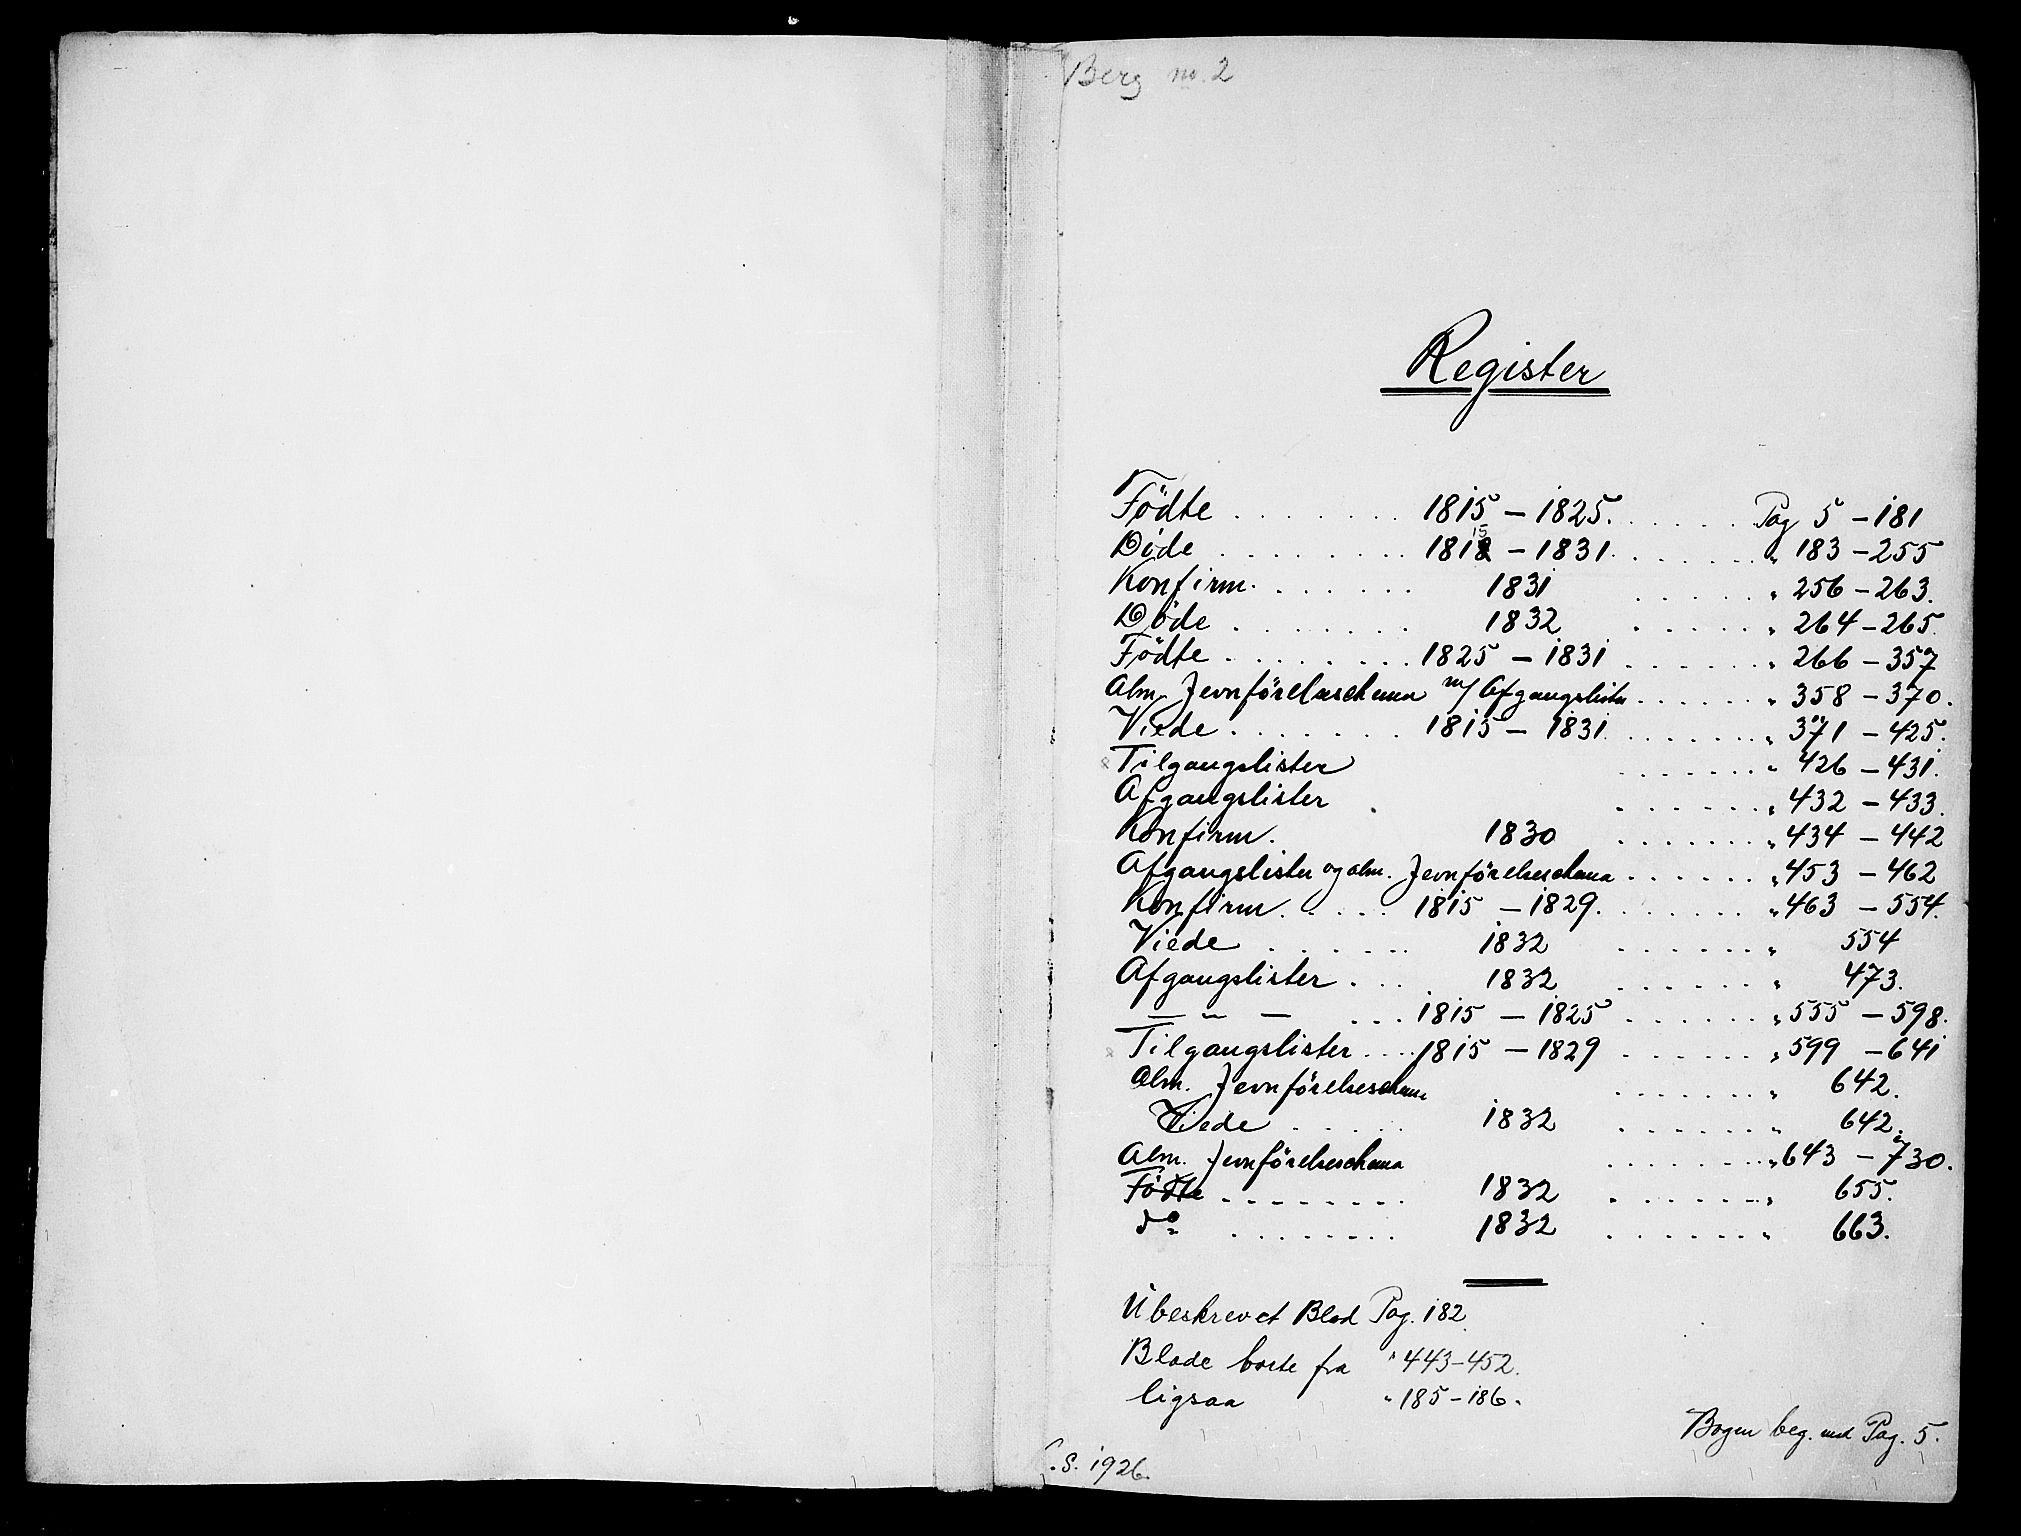 Berg no. 2
Register
Födte 1815 – 1825. Pag 5 – 181
Döde 1815 – 1831. " 183 – 255
Konfirm. 1831 " 256 – 263.
Döde 1832 " 264 – 265.
Födte 1825 – 1831 " 266 – 357
Alm. Jevnförelsesschema m/ Afgangslister " 358 – 370.
Viede 1815 – 1831 " 371 – 425.
Tilgangslister " 426 – 431.
Afgangslister " 432 – 433.
Konfirm. 1830 " 434 – 442
Afgangslister og alm. Jevnförelsesschema " 453 – 462
Konfirm. 1815 – 1829. " 463 – 554.
Viede 1832 " 554
Afgangslister 1832 " 473.
— " — 1815 – 1825 " 555 – 598.
Tilgangslister 1815 – 1829 " 599 – 641
Alm. Jevnförelsesschema " 642.
Viede 1832 " 642.
Alm. Jevnförelsesschema " 643 – 730.
Födte 1832 " 655.
do 1832 " 663.
Ubeskrevet Blad Pag. 182.
Blade borte fra " 443–452.
ligsaa " 185–186.
Bogen beg. med Pag. 5.
S. 1926.